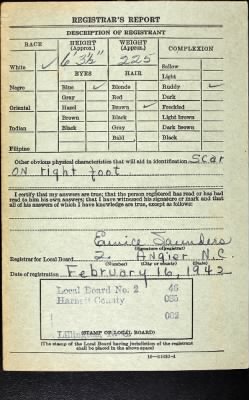 REGISTRAR'S REPORT
DESCRIPTION OF REGISTRANT
RACE HEIGHT (Approx.) WEIGHT (Approx.) COMPLEXION
6' 3½" 225
White ✓ Sallow
EYES HAIR Light
Negro Blue ✓ Blonde Ruddy ✓
Gray Red Dark
Oriental Hazel Brown ✓ Freckled
Brown Black Light brown
Indian Black Gray Dark brown
Bald Black
Filipino
Other obvious physical characteristics that will aid in identification Scar
on right foot
I certify that my answers are true; that the person registered has read or has had
read to him his own answers; that I have witnessed his signature or mark and that
all of his answers of which I have knowledge are true, except as follows:
Eunice Saunders
(Signature of registrar)
Registrar for Local Board 2. Angier N.C.
(Number) (City or county) (State)
Date of registration February 16, 1942
Local Board No. 2 46
Harnett County 085
002
(STAMP OF LOCAL BOARD)
(The stamp of the Local Board having jurisdiction of the registrant
shall be placed in the above space)